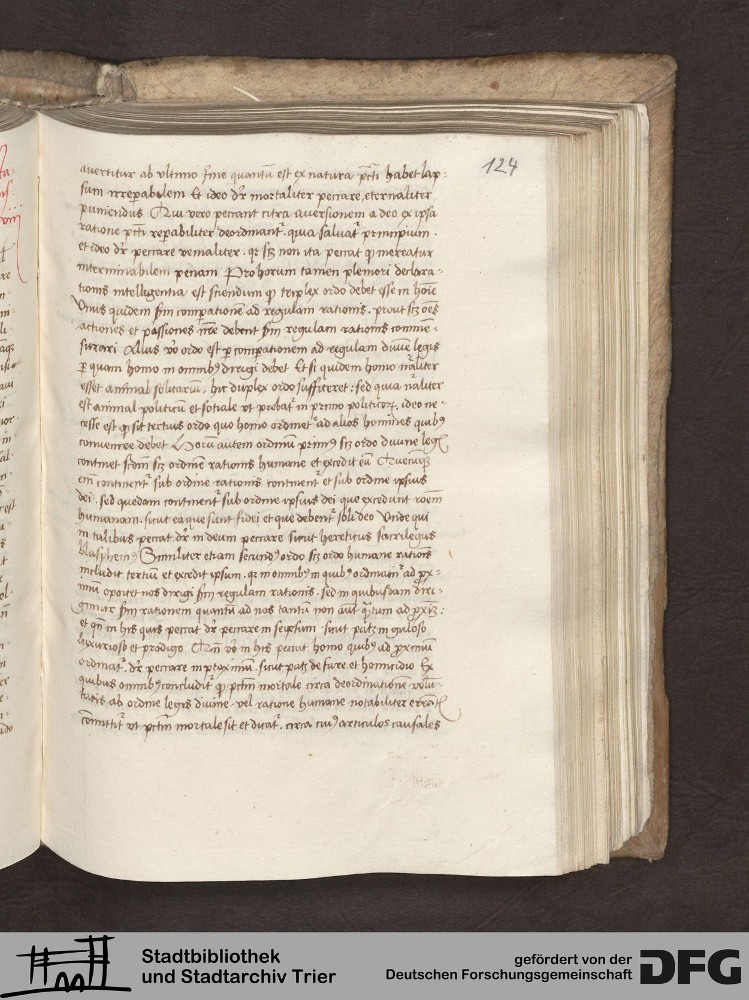 124
auertitur ab ultimo fine quantũ est ex natura pcc̃ti habet lap-
sum irreparabilem Et ideo dr̃ mortaliter peccare, eternaliter
puniendus Qui vero peccant citra auersionem a deo ex ipsa
ratione pcc̃ti reparabiliter deordinant᷑. quia saluat᷑ principium.
et ideo dr̃ peccare venialiter. qr sꝫ non ita peccat ꝙ mereatur
interminabilem penam Pro horum tamen pleniori declara-
tionis intelligentia est sciendum ꝙ triplex ordo debet esse in hoĩe
Vnus quidem fm comparationẽ ad regulam rationis. prout sꝫ oẽs
actiones et passiones nr̃e debent fm regulam rationis comme-
surari Alius vo ordo est ꝑ comparationem ad regulam diuine legis
ꝑ quam homo in omnibꝰ dirigi debet Et si quidem homo nãliter
esset animal solitariũ, hic duplex ordo sufficeret: sed quia nãliter
est animal politicũ et sotiale vt probat᷑ in primo politicoꝝ. ideo ne-
cesse est ꝙ sit tertius ordo quo homo ordinet᷑ ad alios homines quibꝰ
conuiuere debet Horũ autem ordinũ primꝰ sꝫ ordo diuine legis
continet scdm sꝫ ordinẽ rationis humane et excedit eũ Quecũqꝫ
em̃ continent᷑ sub ordine rationis continent᷑ et sub ordine ipsius
dei. sed quedam continent᷑ sub ordine ipsius dei que excedunt rõem
humanam. sicut ea que sunt fidei et que debent᷑ soli deo Vnde qui
in talibus peccat dr̃ in deum peccare sicut hereticus sacrilegus
blasphemꝰ Similiter etiam secundꝰ ordo sꝫ ordo humane rationis
includit tertiũ et excedit ipsum. qr in omnibꝰ in quibꝰ ordinam᷑ ad prox-
imũ oportet nos dirigi fm regulam rationis. sed in quibusdam diri-
gimur fm rationem quantũ ad nos tantũ non aũt q̃tum ad proxĩꝫ:
et qñ in his quis peccat dr̃ peccare in seipsum. sicut patꝫ in guloso
luxurioso et prodigo Qñ vo in his peccat homo quibꝰ ad proximũ
ordinat᷑. dr̃ peccare in proximũ. sicut patꝫ de fure et homicidio Ex
quibus omnibꝰ concludit᷑ ꝙ pctm̃ mortale circa deordinationẽ volũ-
tatis ab ordine legis diuine vel ratione humane notabiliter
cõmittit᷑ vt pctm̃ mortale sit et dicat᷑. circa cuiꝰ articulos causales
Stadtbibliothek
und Stadtarchiv Trier
gefördert von der
Deutschen Forschungsgemeinschaft
DFG